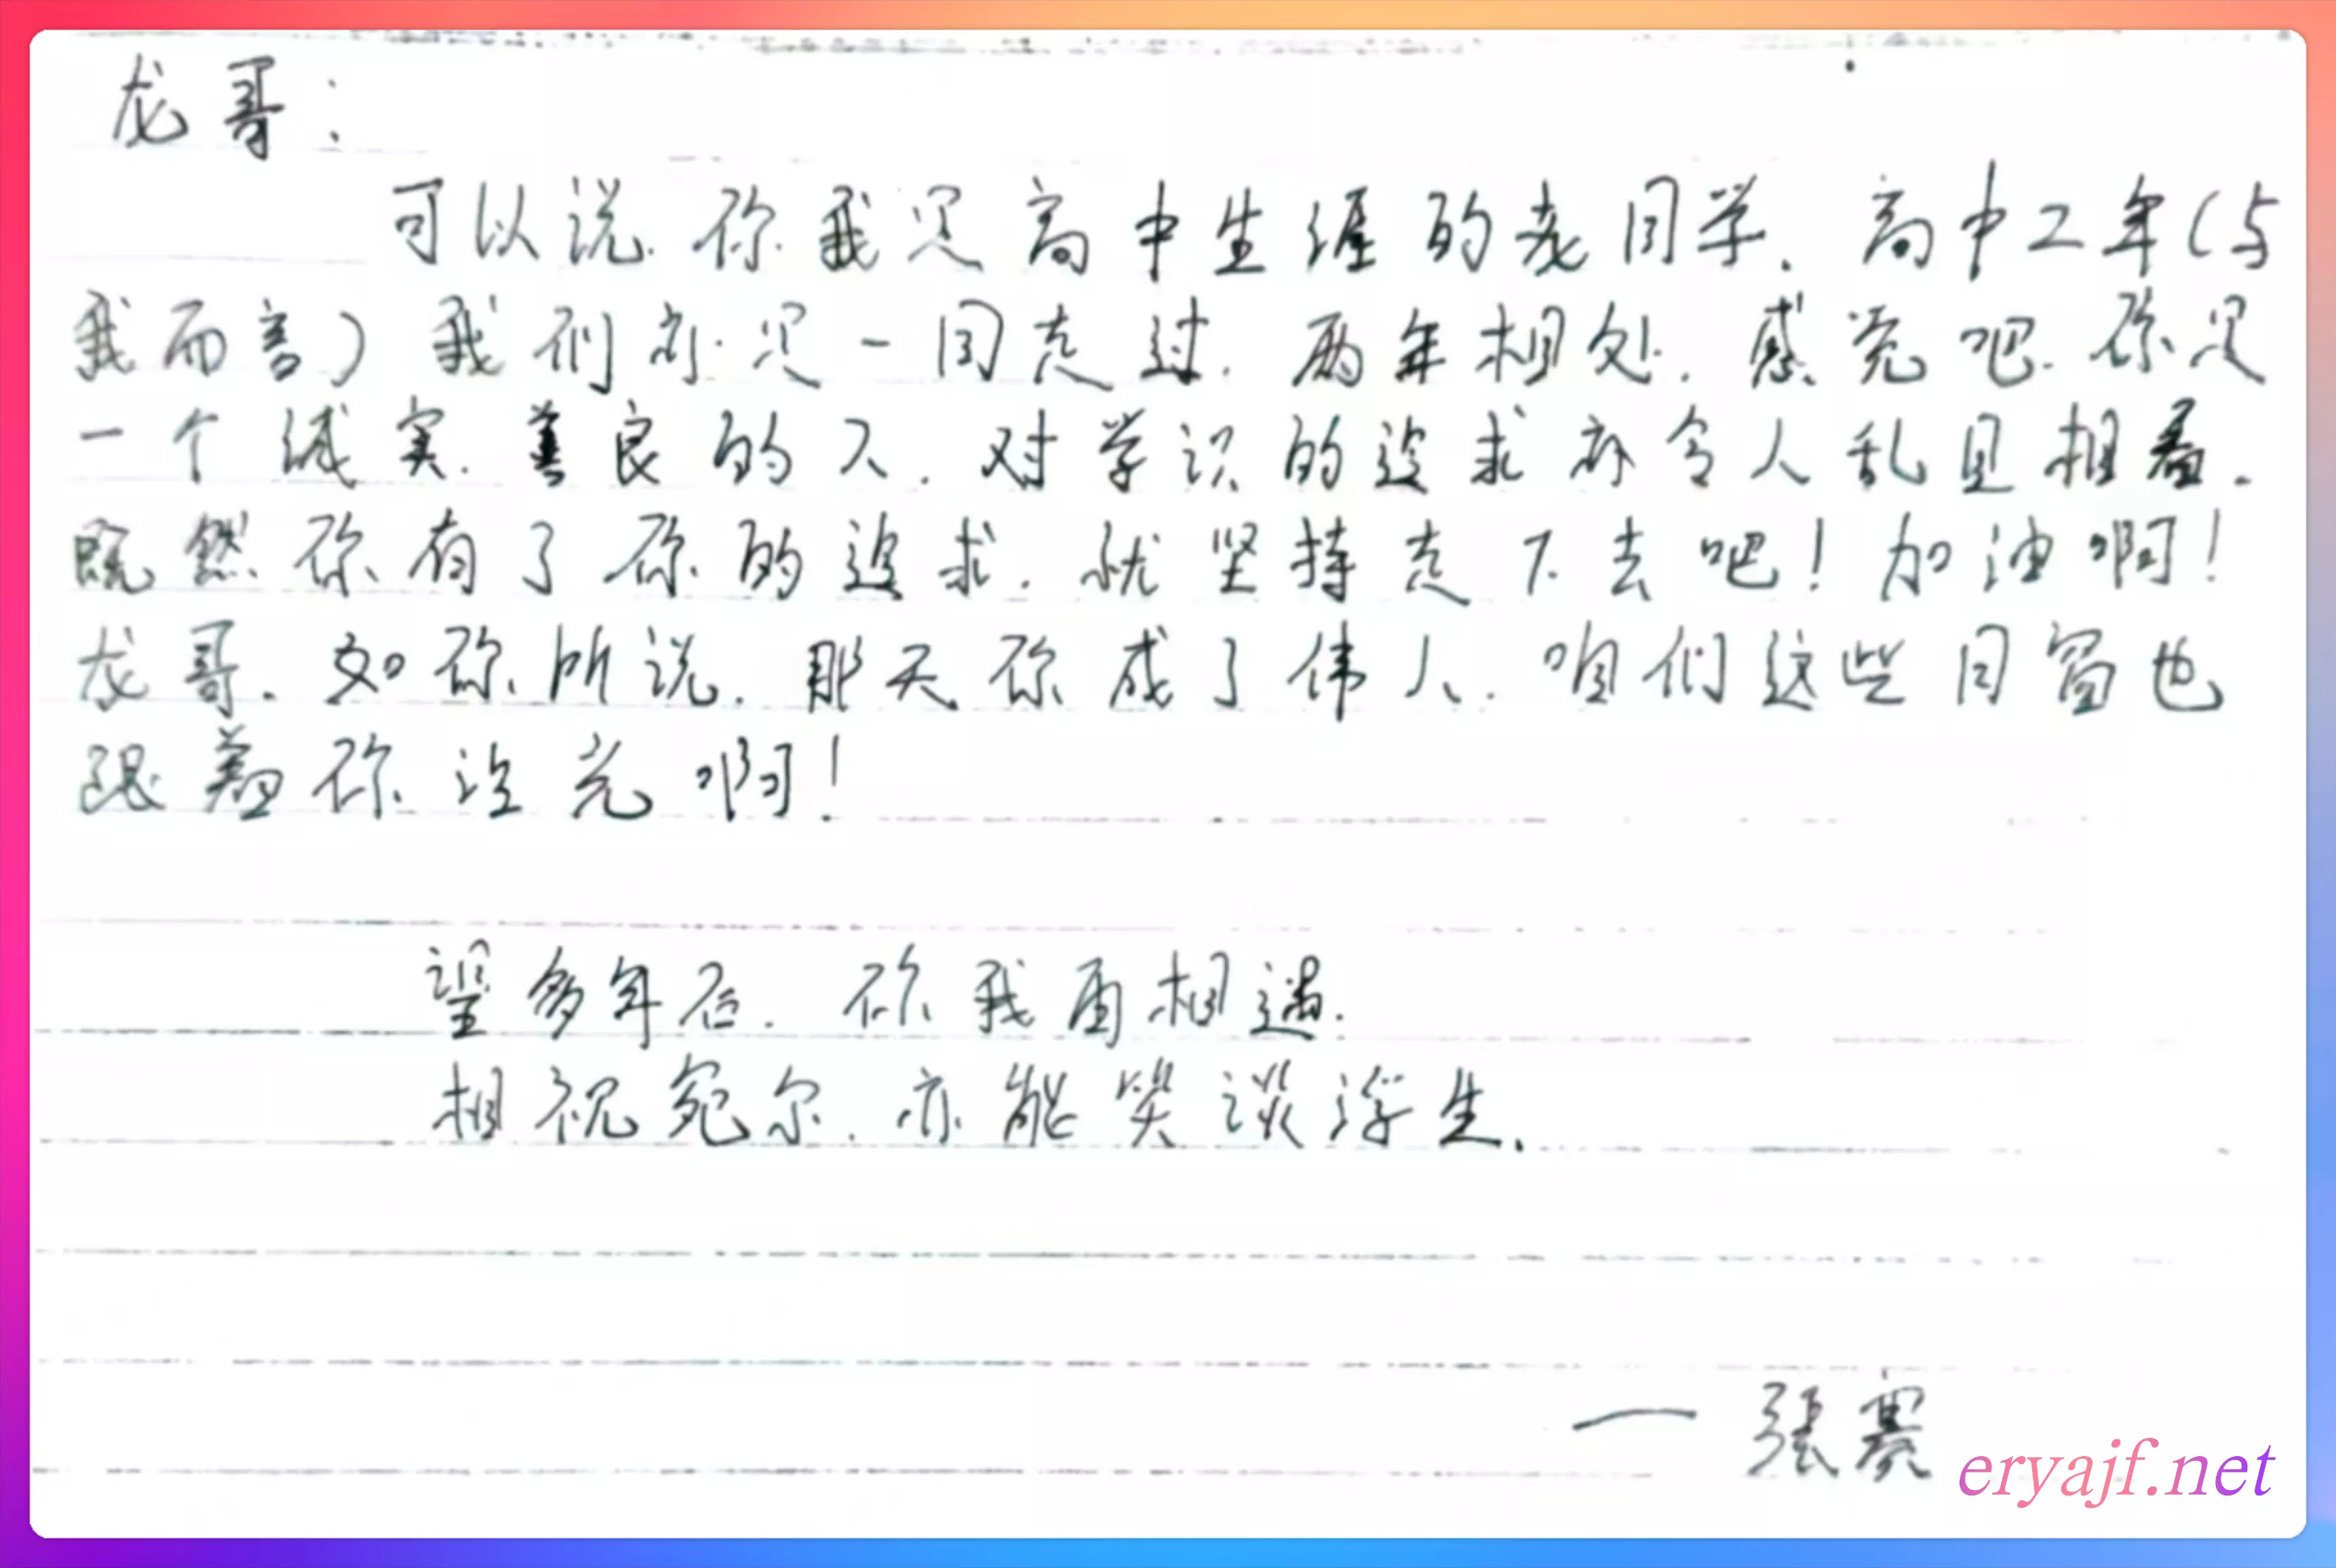 龙哥:
可以说.你我是高中生涯的老同学.高中二年(与
我而言)我们亦是一同走过.两年相处.感觉吧.你是
一个诚实.善良的人.对学识的追求亦令人乱目相看.
既然你有了你的追求.就坚持走下去吧!加油啊!
龙哥.如你所说.那天你成了伟人.咱们这些同窗也
跟着你沾光啊!
望多年后.你我再相遇.
相视宛尔.亦能笑谈浮生.
—张赛
eryajf.net